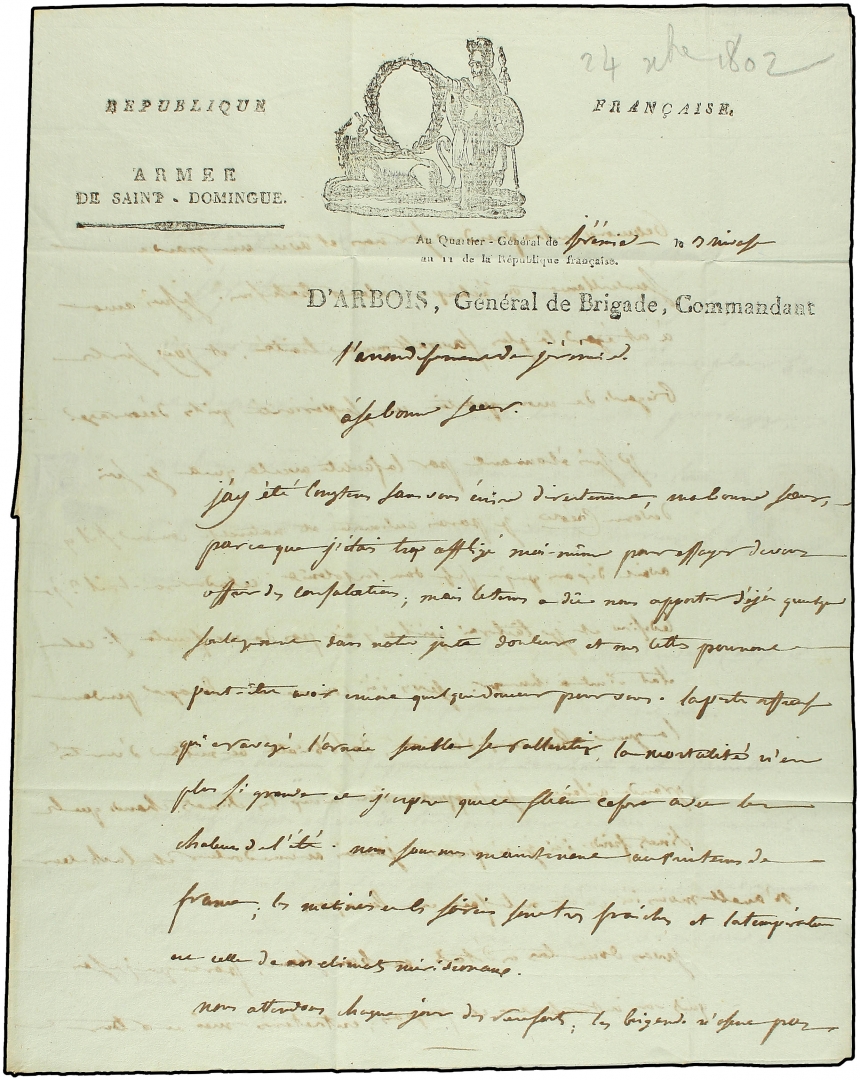 24 xbre 1802
REPUBLIQUE FRANÇAISE.
ARMEE
DE SAINT-DOMINGUE.
Au Quartier-Général de jérémie le 3 nivose
an 11 de la République française.
D'ARBOIS, Général de Brigade, Commandant
l'arrondissement de jérémie.
à sa bonne soeur.
j'ay été longtems sans vous écrire directement, ma bonne soeur,
parce que j'étais trop affligé moi-même pour essayer de vous
offrir des consolations; mais le tems a dû nous apporter déjà quelque
soulagement dans notre juste douleur et mes lettres pourront
peut-être avoir encore quelque douceur pour vous. la peste affreuse
qui a ravagé l'armée semble se rallentir, la mortalité n'est
plus si grande et j'espère que ce fléau cessera avec les
chaleurs de l'été. nous sommes maintenant au printems de
france; les matinées et les soirées sont très fraîches et la température
est celle de nos climats méridionaux.
nous attendons chaque jour des renforts; les brigands n'osent pas